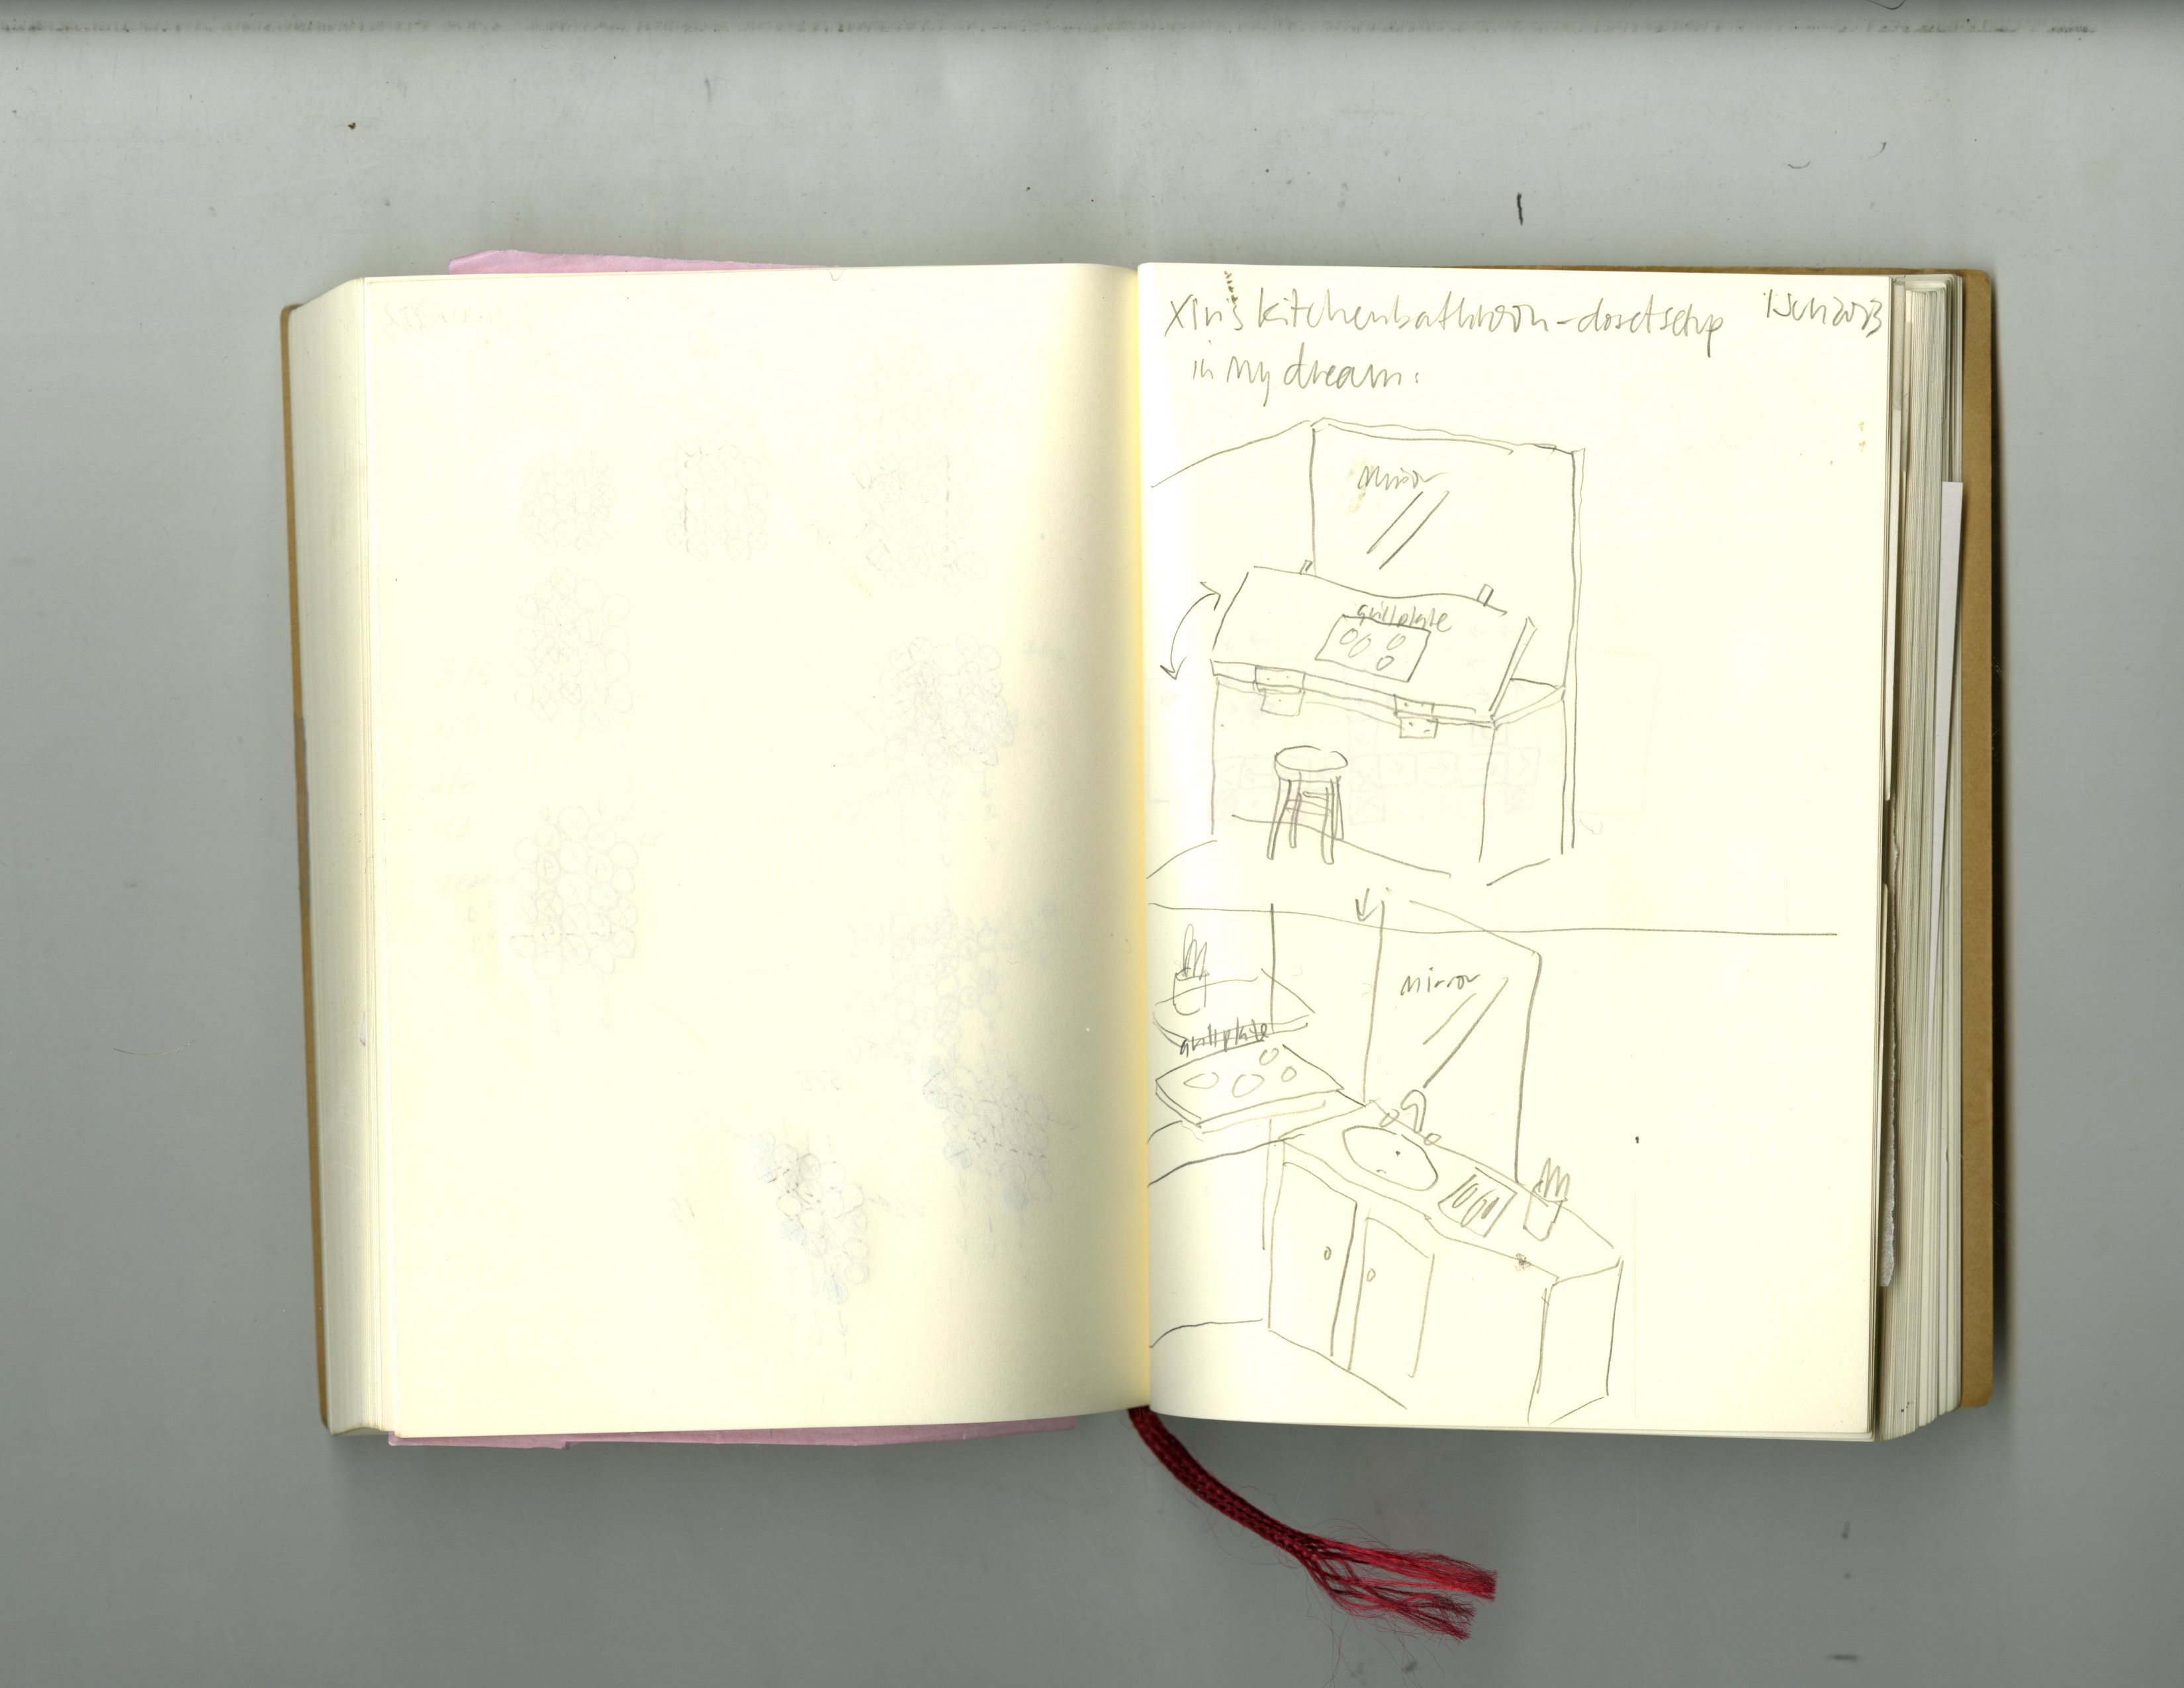 Xin's kitchenbathroom-closet setup
in my dream:
mirror
grill plate
mirror
grill plate